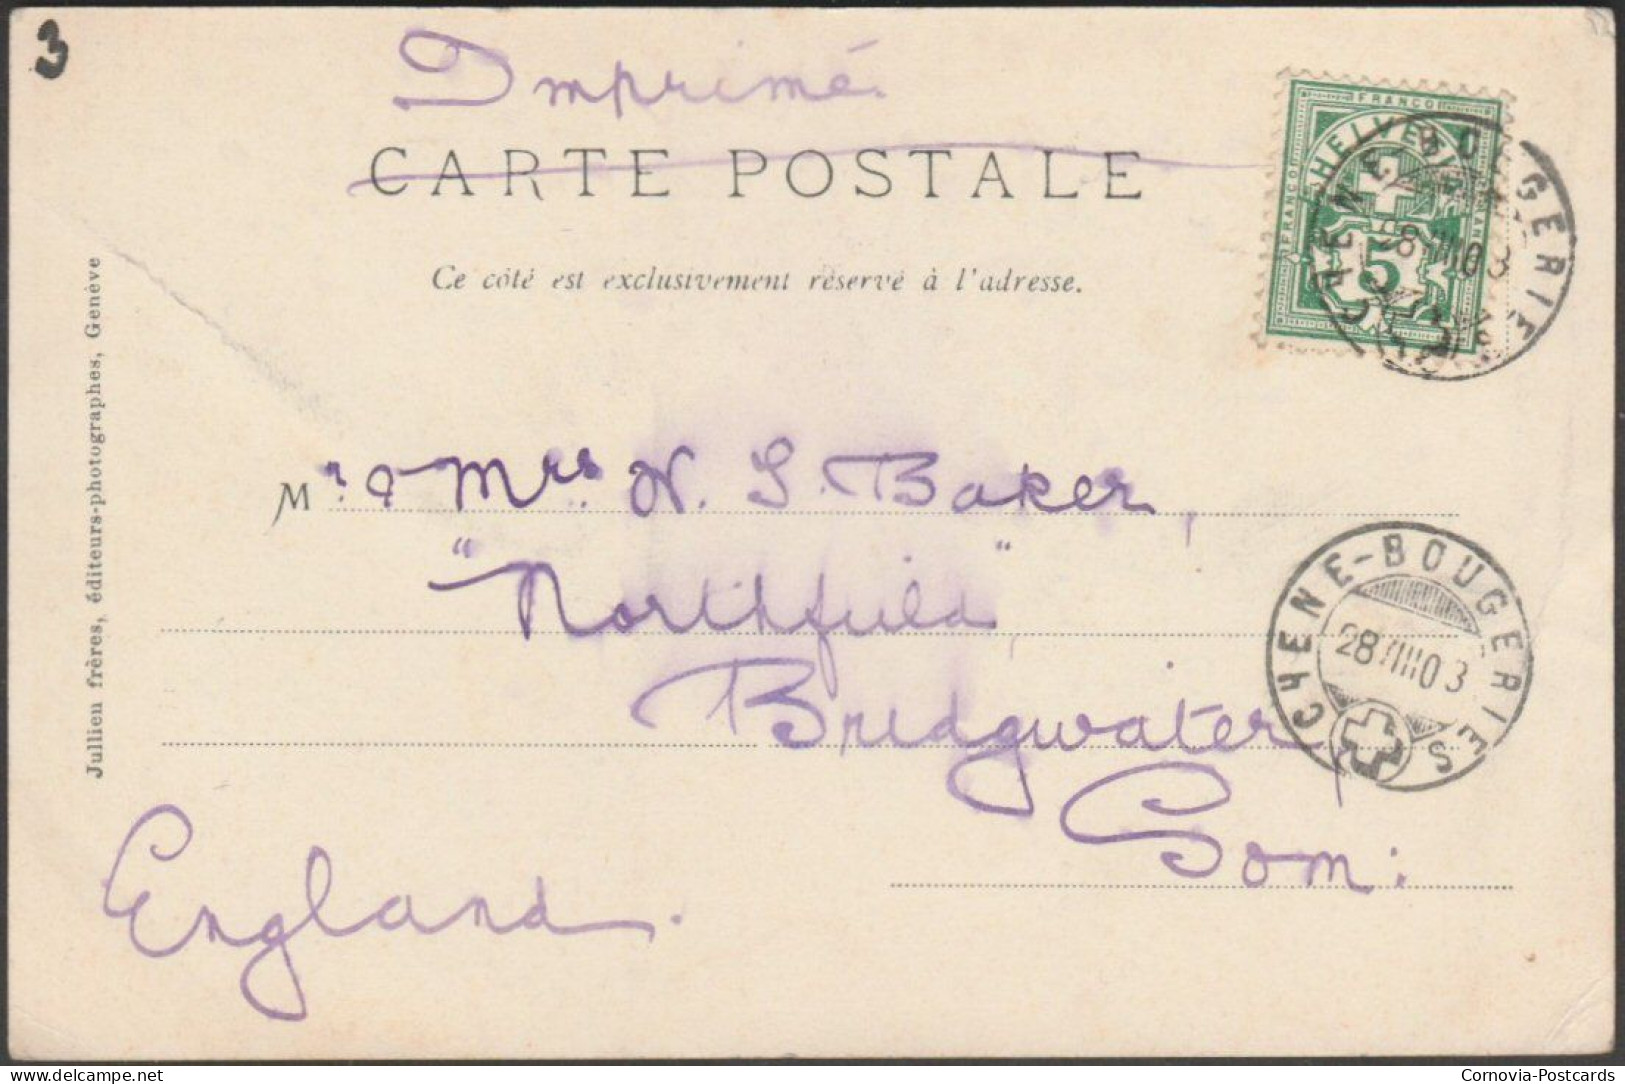 3
Imprimé.
CARTE POSTALE
Ce côté est exclusivement réservé à l'adresse.
FRANCO
HELVETIA
FRANCO
5
CHENE-BOUGERIES
28 VIII 03
Mr. & Mrs. W. S. Baker,
"Northfield"
Bridgwater,
Som:
England.
CHENE-BOUGERIES
28 VIII 03
Jullien frères, éditeurs-photographes, Genève
delcampe.net
Cornovia-Postcards